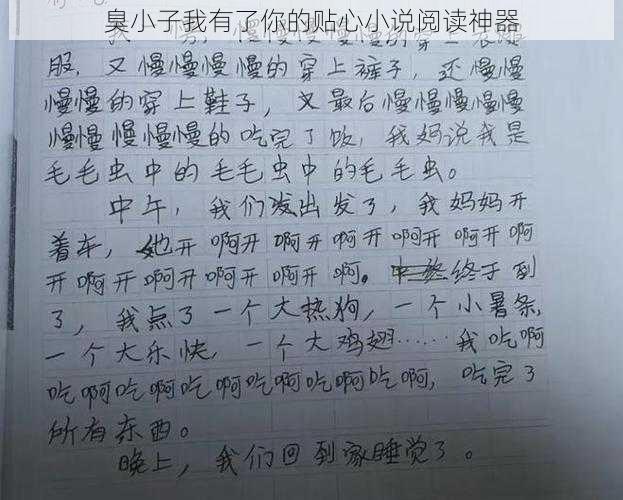 臭小子我有了你的贴心小说阅读神器
服，又慢慢慢慢的穿上裤子，还慢慢
慢慢的穿上鞋子，又最后慢慢慢慢慢
慢慢慢慢慢的吃完了饭，我妈说我是
毛毛虫中的毛毛虫中的毛毛虫。
中午，我们出发了，我妈妈开
着车，她开啊开啊开啊开啊开啊开啊
开啊开啊开啊开啊开啊。终于到
了，我点了一个大热狗，一个小薯条，
一个大乐快，一个大鸡翅……我吃啊
吃啊吃啊吃啊吃啊吃啊吃啊，吃完了
所有东西。
晚上，我们回到家睡觉了。